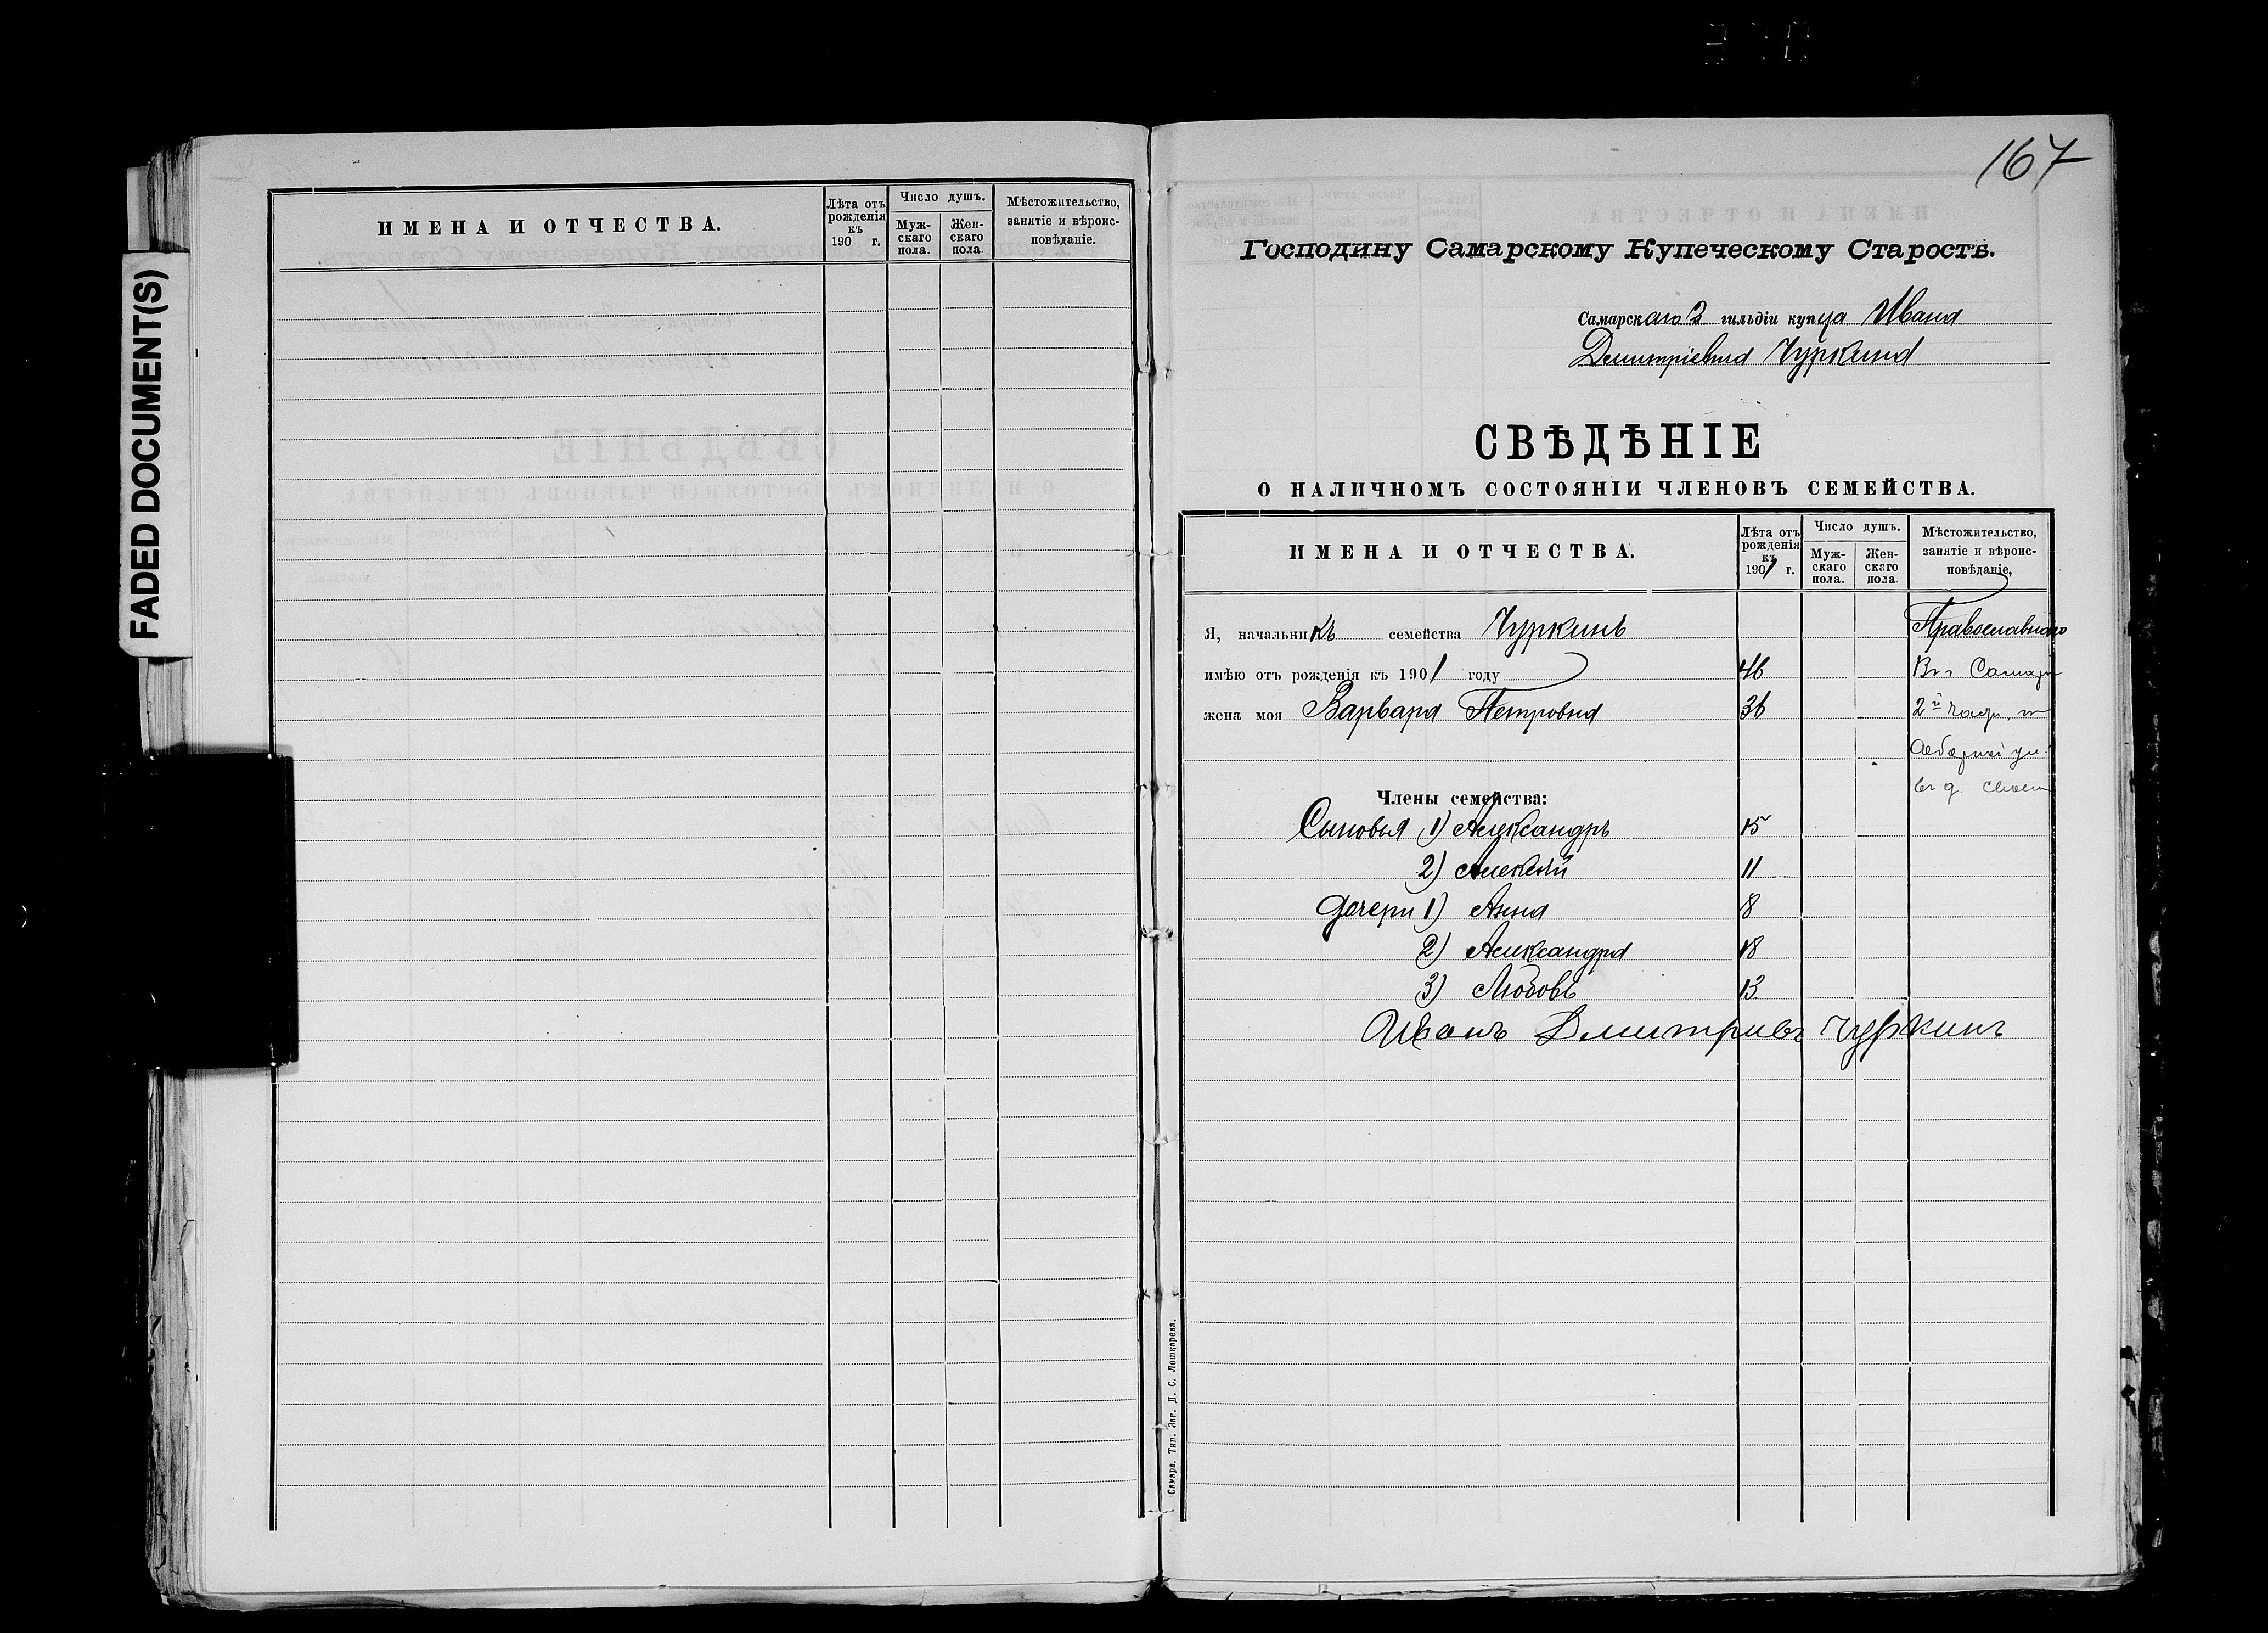 FADED DOCUMENT(S)
ИМЕНА И ОТЧЕСТВА.
Лѣта отъ рожденія къ 190 г.
Число душъ.
Муж-скаго пола.
Жен-скаго пола.
Мѣстожительство, занятіе и вѣроис-повѣданіе.
167
Господину Самарскому Купеческому Старостѣ.
Самарскаго 2 гильдіи купца Ивана
Димитріевича Чуркина
СВѢДѢНІЕ
О НАЛИЧНОМЪ СОСТОЯНІИ ЧЛЕНОВЪ СЕМЕЙСТВА.
ИМЕНА И ОТЧЕСТВА.
Лѣта отъ рожденія къ 1901 г.
Число душъ.
Муж-скаго пола.
Жен-скаго пола.
Мѣстожительство, занятіе и вѣроис-повѣданіе,
Я, начальникъ семейства Чуркинъ Православнаго
имѣю отъ рожденія къ 1901 году 46 Въ г Самарѣ
жена моя Варвара Петровна 36 2й части, на
ул.
въ д. своемъ
Члены семейства:
Сыновья 1) Александръ 15
2) Алексѣй 11
дочери 1) Анна 8
2) Александра 18
3) Любовь 13
Иванъ Дмитриевъ Чуркинъ
Самара. Тип. Зар. Д. С. Лошкарева.